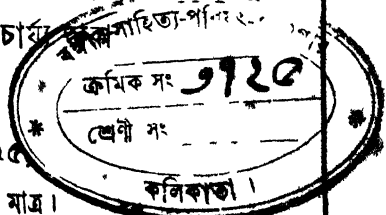 চার্য্য
সাহিত্য-পরি
ক্রমিক সং ৩৭২৫
শ্রেণী সং
কলিকাতা ।
মাত্র ।